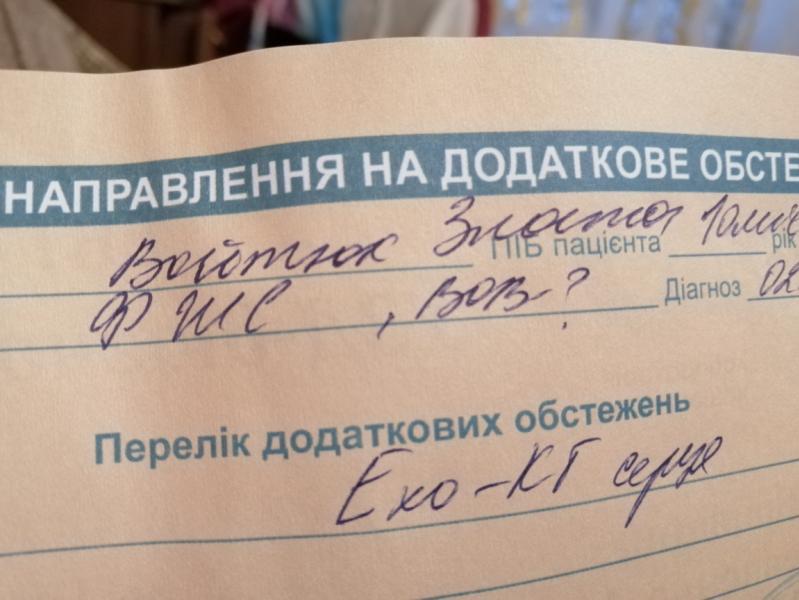 НАПРАВЛЕННЯ НА ДОДАТКОВЕ ОБСТЕ
Войтюк Злата ПІБ пацієнта рік
ФЖС, ВОВ-? Діагноз 02
Перелік додаткових обстежень
Ехо-КГ серце